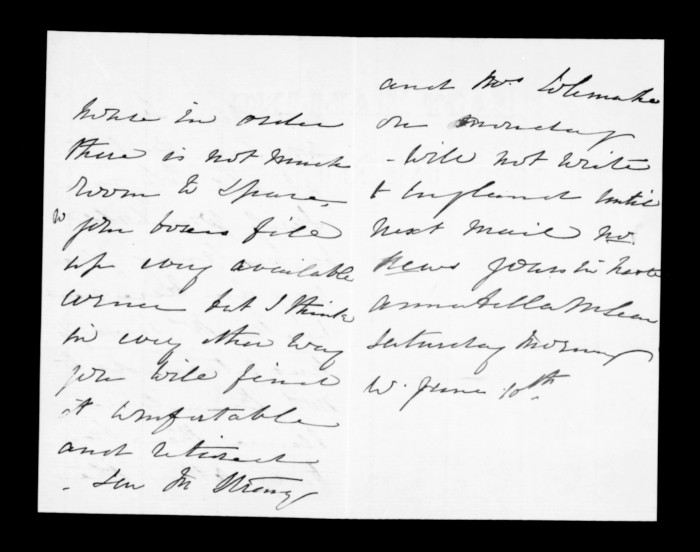 house in order
there is not much
room to spare.
your boxes file
up every available
corner but I think
in every other way
you will find
it comfortable
and retired
- Sen Mr Strong
and Mrs
on monday
- will not write
to England until
next mail no
news yours in haste
Annabella McLean
Saturday Morning
W. June 10th